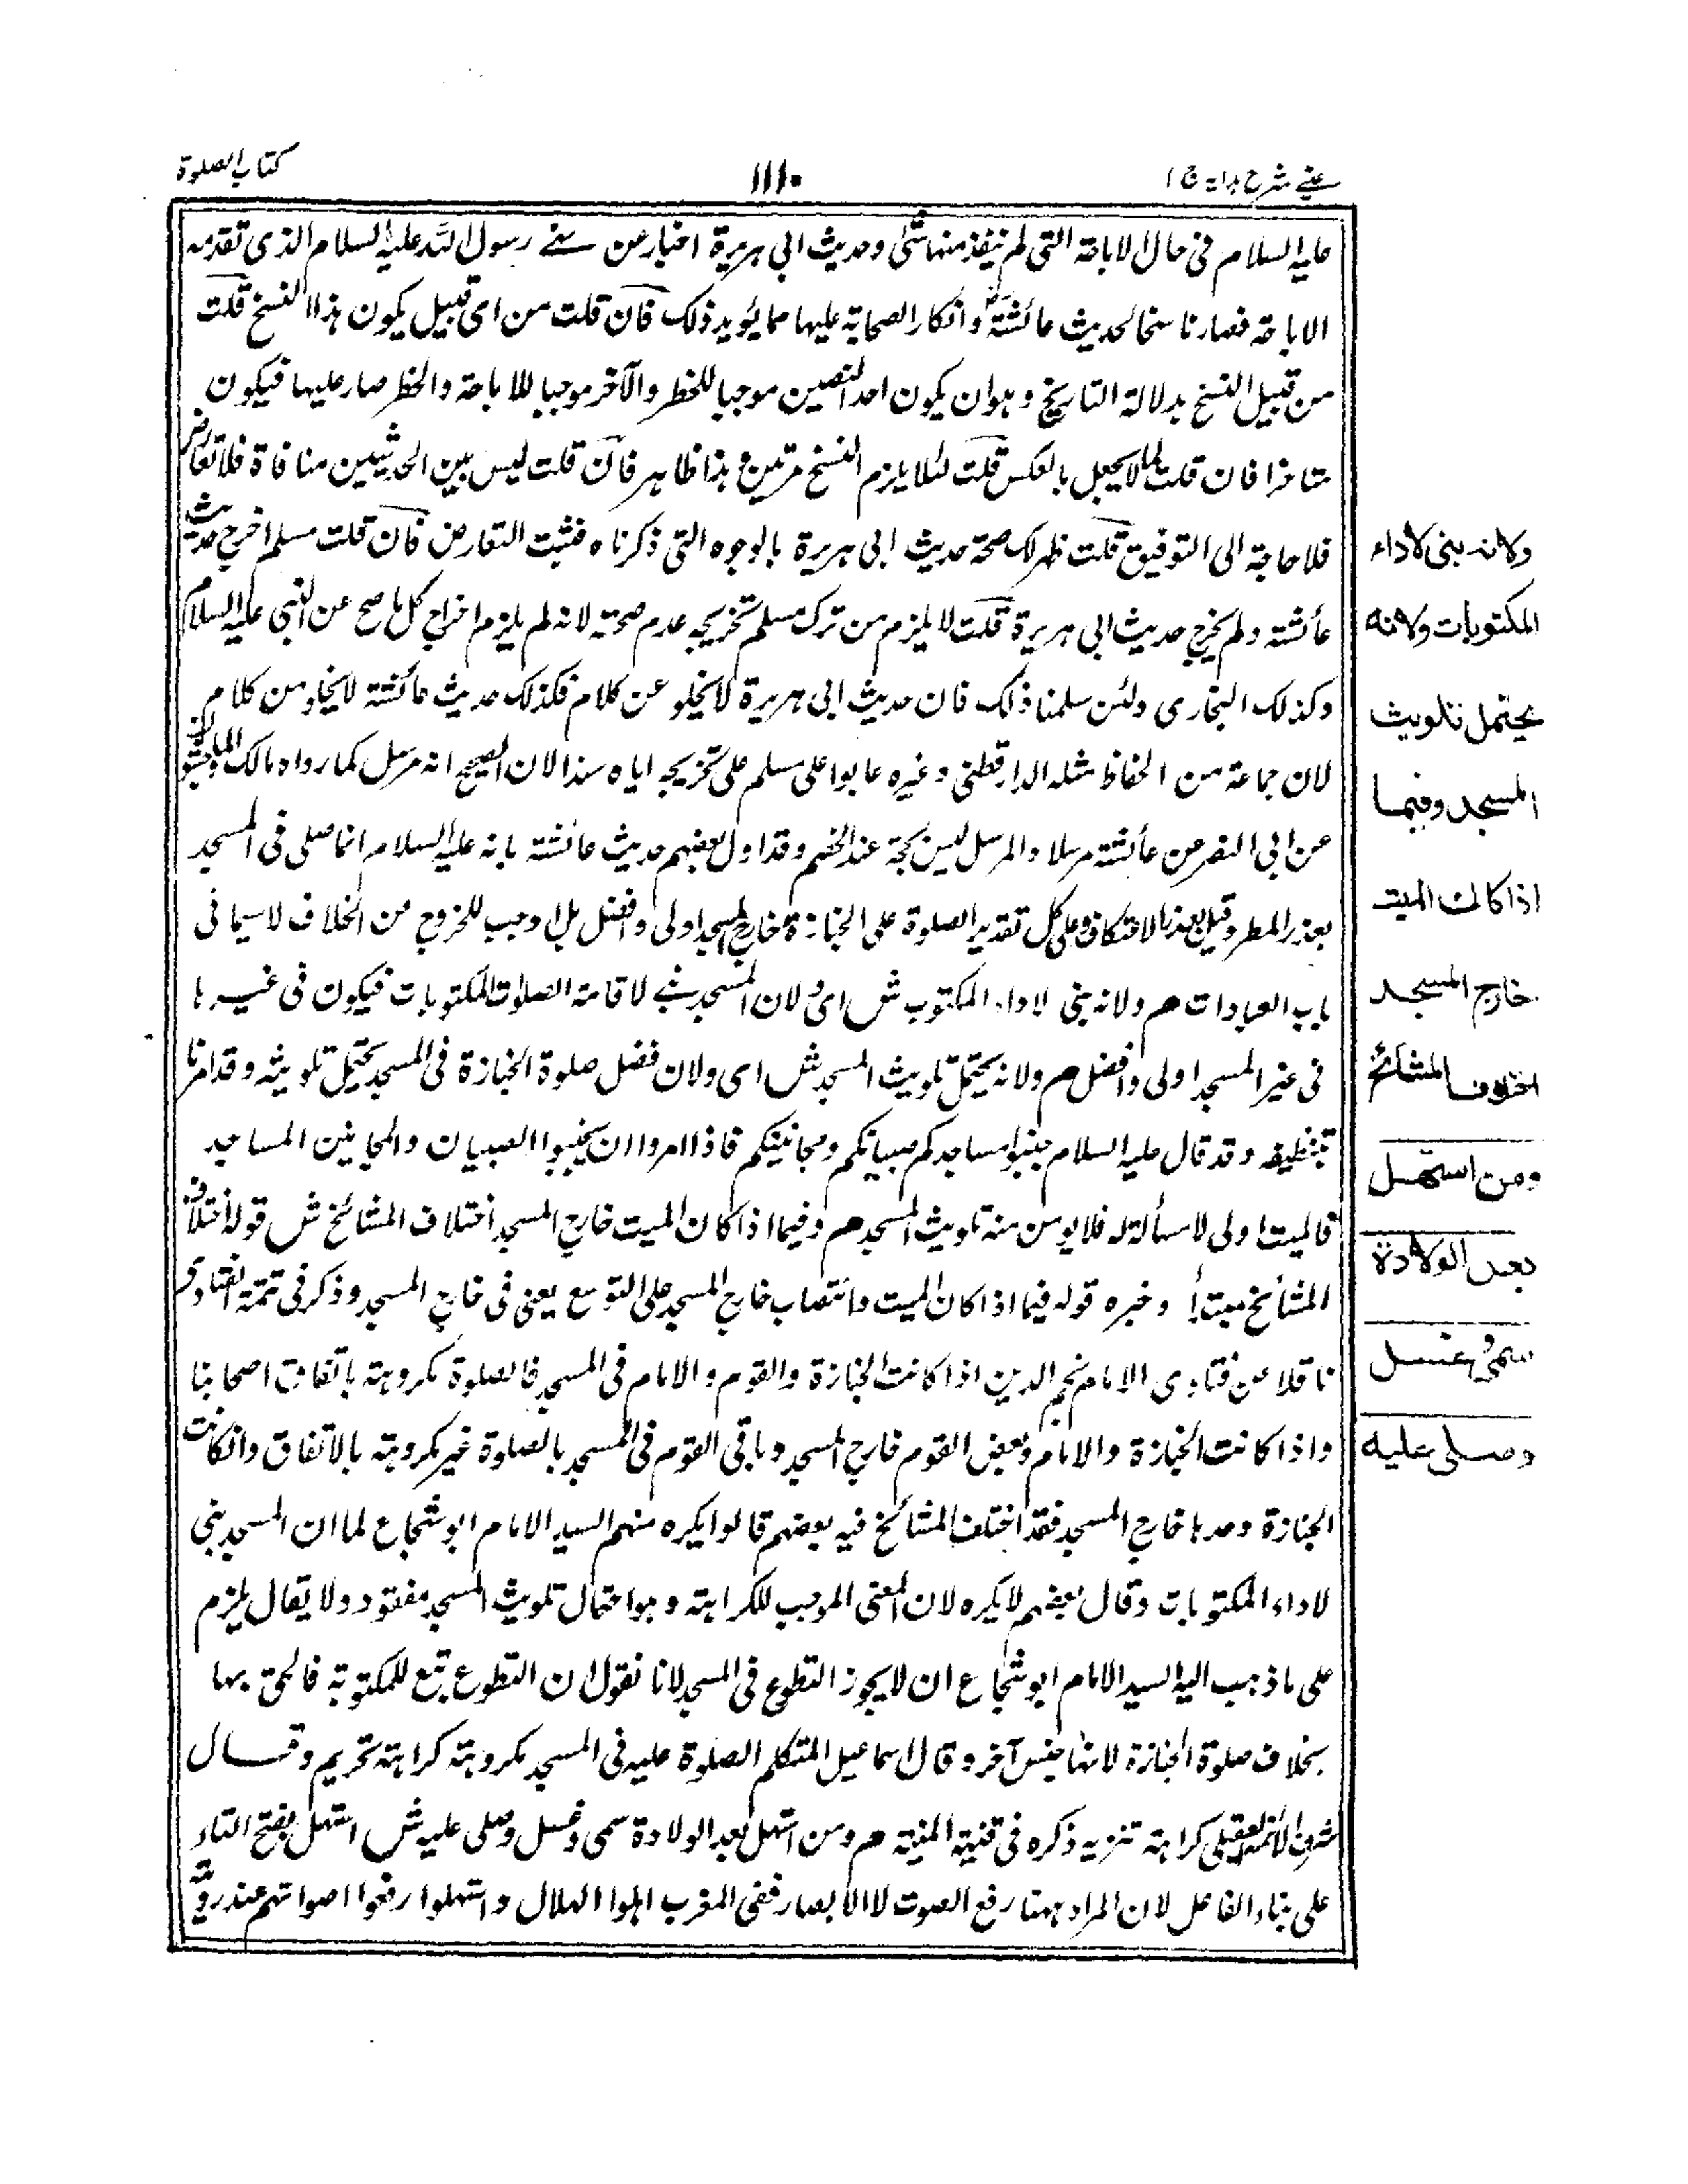 عینی شرح هدایة ج ١
١١١٠
كتاب الصلوة
عليه السلام في حال الاباحة التي لم ينفذ منها شئ وحديث ابي هريرة اخبار عن نهي رسول الله عليه السلام الذى تقدمه
الاباحة فصار ناسخا لحديث عائشة وانكار الصحابة عليها مما يؤيد ذلك فان قلت من اى قبيل يكون هذا النسخ قلت
من قبيل النسخ بدلالة التاريخ وهو ان يكون احد النصين موجبا للحظر والآخر موجبا للاباحة والحظر صار عليها فيكون
متاخرا فان قلت لم لا يجعل بالعكس قلت لئلا يلزم النسخ مرتين وهذا ظاهر فان قلت ليس بين الحديثين منافاة فلا تعارض
فلا حاجة الى التوفيق قلت ظهر لك صحة حديث ابى هريرة بالوجوه التى ذكرناه فثبت التعارض فان قلت مسلم اخرج حديث
عائشة ولم يخرج حديث ابى هريرة قلت لا يلزم من ترك مسلم تخريجه عدم صحته لانه لم يلزم اخراج كل ما صح عن النبى عليه السلام
وكذلك البخارى ولئن سلمنا ذلك فان حديث ابى هريرة لا يخلو عن كلام فكذلك حديث عائشة لا يخلو من كلام
لان جماعة من الحفاظ مثله الدارقطنى وغيره عابوا على مسلم على تخريجه اياه سندا لان الصحيح انه مرسل كما رواه مالك
عن ابى النضر عن عائشة مرسلا والمرسل ليس بحجة عند الخصم وقد اول بعضهم حديث عائشة بانه عليه السلام انما صلى فى المسجد
بعذر المطر وقيل بعذر الاعتكاف وعلى كل تقدير الصلوة على الجنازة خارج المسجد اولى وافضل بل اوجب للخروج من الخلاف لا سيما فى
باب العبادات م ولانه بنى لاداء المكتوب ش اى ولان المسجد بنى لاقامة الصلوات المكتوبات فيكون فى غيرها
فى غير المسجد اولى وافضل م ولانه يحتمل تلويث المسجد ش اى ولان فضل صلوة الجنازة فى المسجد يحتمل تلويثه وقد امرنا
بتنظيفه وقد قال عليه السلام جنبوا مساجدكم صبيانكم ومجانينكم فاذا امروا ان يجنبوا الصبيان والمجانين المساجد
فالميت اولى لا مسألة له فلا يومن منه تلويث المسجد م وفيما اذا كان الميت خارج المسجد اختلاف المشائخ ش قوله اختلاف
المشائخ مبتدأ وخبره قوله فيما اذا كان الميت وانتصاب خارج المسجد على التوسع يعنى فى خارج المسجد وذكر فى تتمة الفتاوى
ناقلا عن فتاوى الامام نجم الدين اذا كانت الجنازة والقوم والامام فى المسجد فالصلوة مكروهة باتفاق اصحابنا
واذا كانت الجنازة والامام وبعض القوم خارج المسجد وباقى القوم فى المسجد بالصلوة غير مكروهة بالاتفاق وان كانت
الجنازة وحدها خارج المسجد فقد اختلف المشائخ فيه بعضهم قالوا يكره منهم السيد الامام ابو شجاع لما ان المسجد بنى
لاداء المكتوبات وقال بعضهم لا يكره لان المعنى الموجب للكراهة وهو احتمال تلويث المسجد مفقود ولا يقال يلزم
على ما ذهب اليه السيد الامام ابو شجاع ان لا يجوز التطوع فى المسجد لانا نقول ان التطوع تبع للمكتوبة فالحق بها
بخلاف صلوة الجنازة لانها جنس آخر وقال اسماعيل المتكلم الصلوة عليه فى المسجد مكروهة كراهة تحريم وقال
شرف الائمة العقيلى كراهة تنزيه ذكره فى قنية المنية م ومن استهل بعد الولادة سمى وغسل وصلى عليه ش استهل بفتح التاء
على بناء الفاعل لان المراد ههنا رفع الصوت لا الابصار ففى المغرب اهلوا الهلال واستهلوا رفعوا اصواتهم عند رؤيته
ولانه بنى لاداء
المكتوبات ولانه
يحتمل تلويث
المسجد وفيما
اذا كان الميت
خارج المسجد
اختلاف المشائخ
ومن استهل
بعد الولادة
سمى وغسل
وصلى عليه